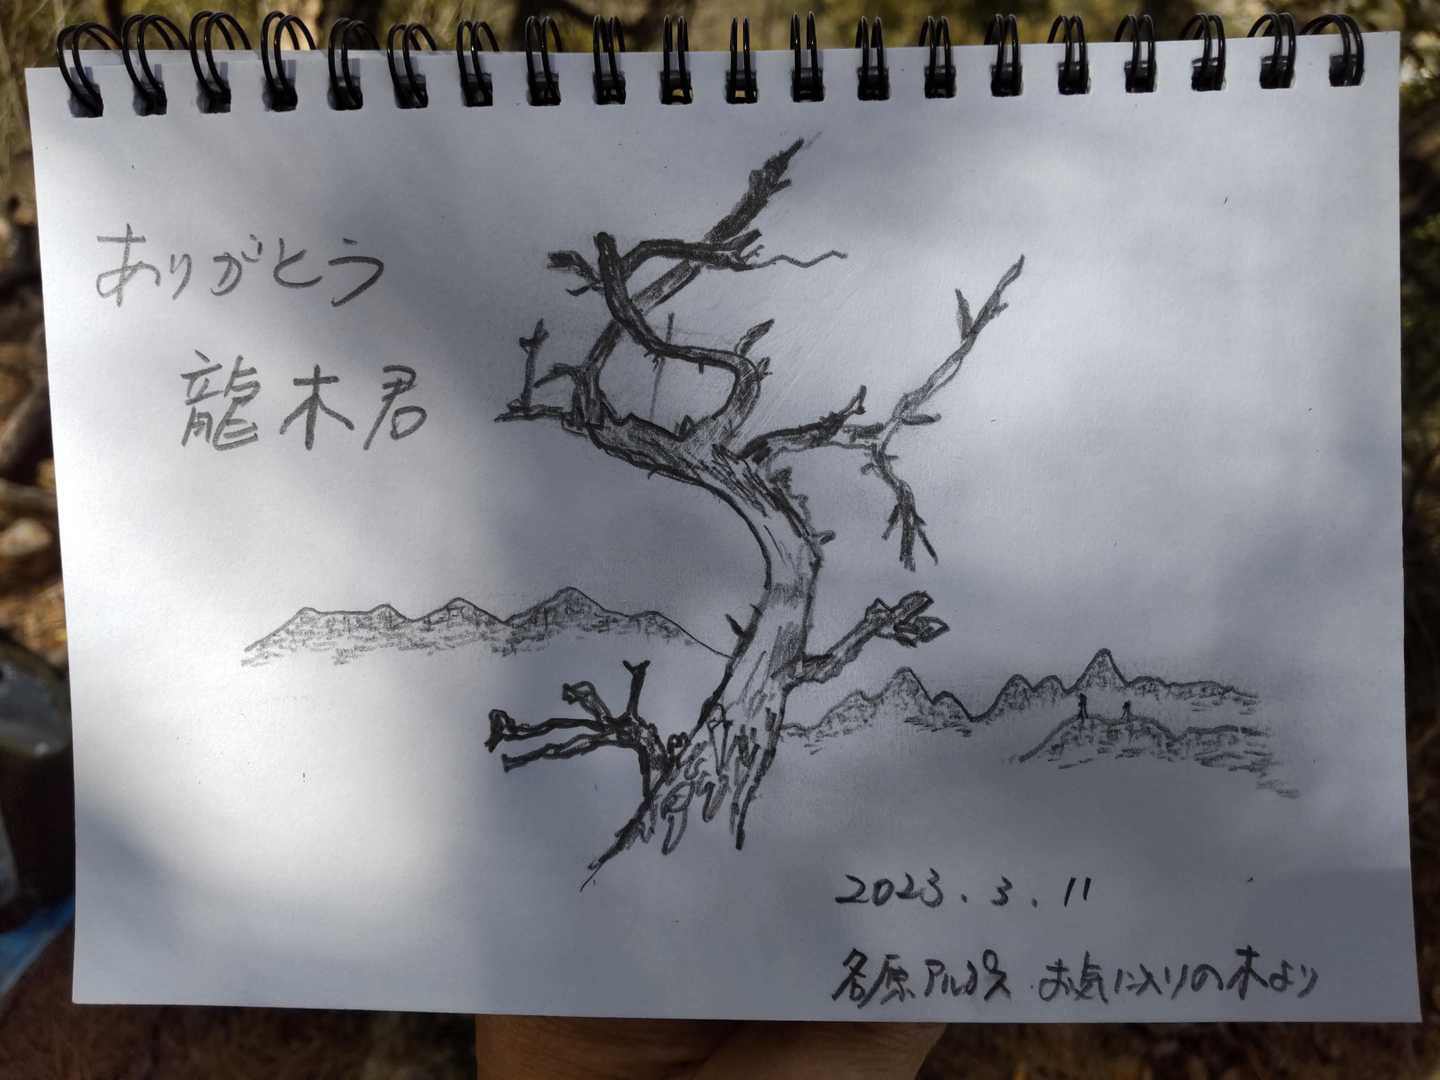 ありがとう
龍木君
2023.3.11
各原アルプス お気に入りの木より